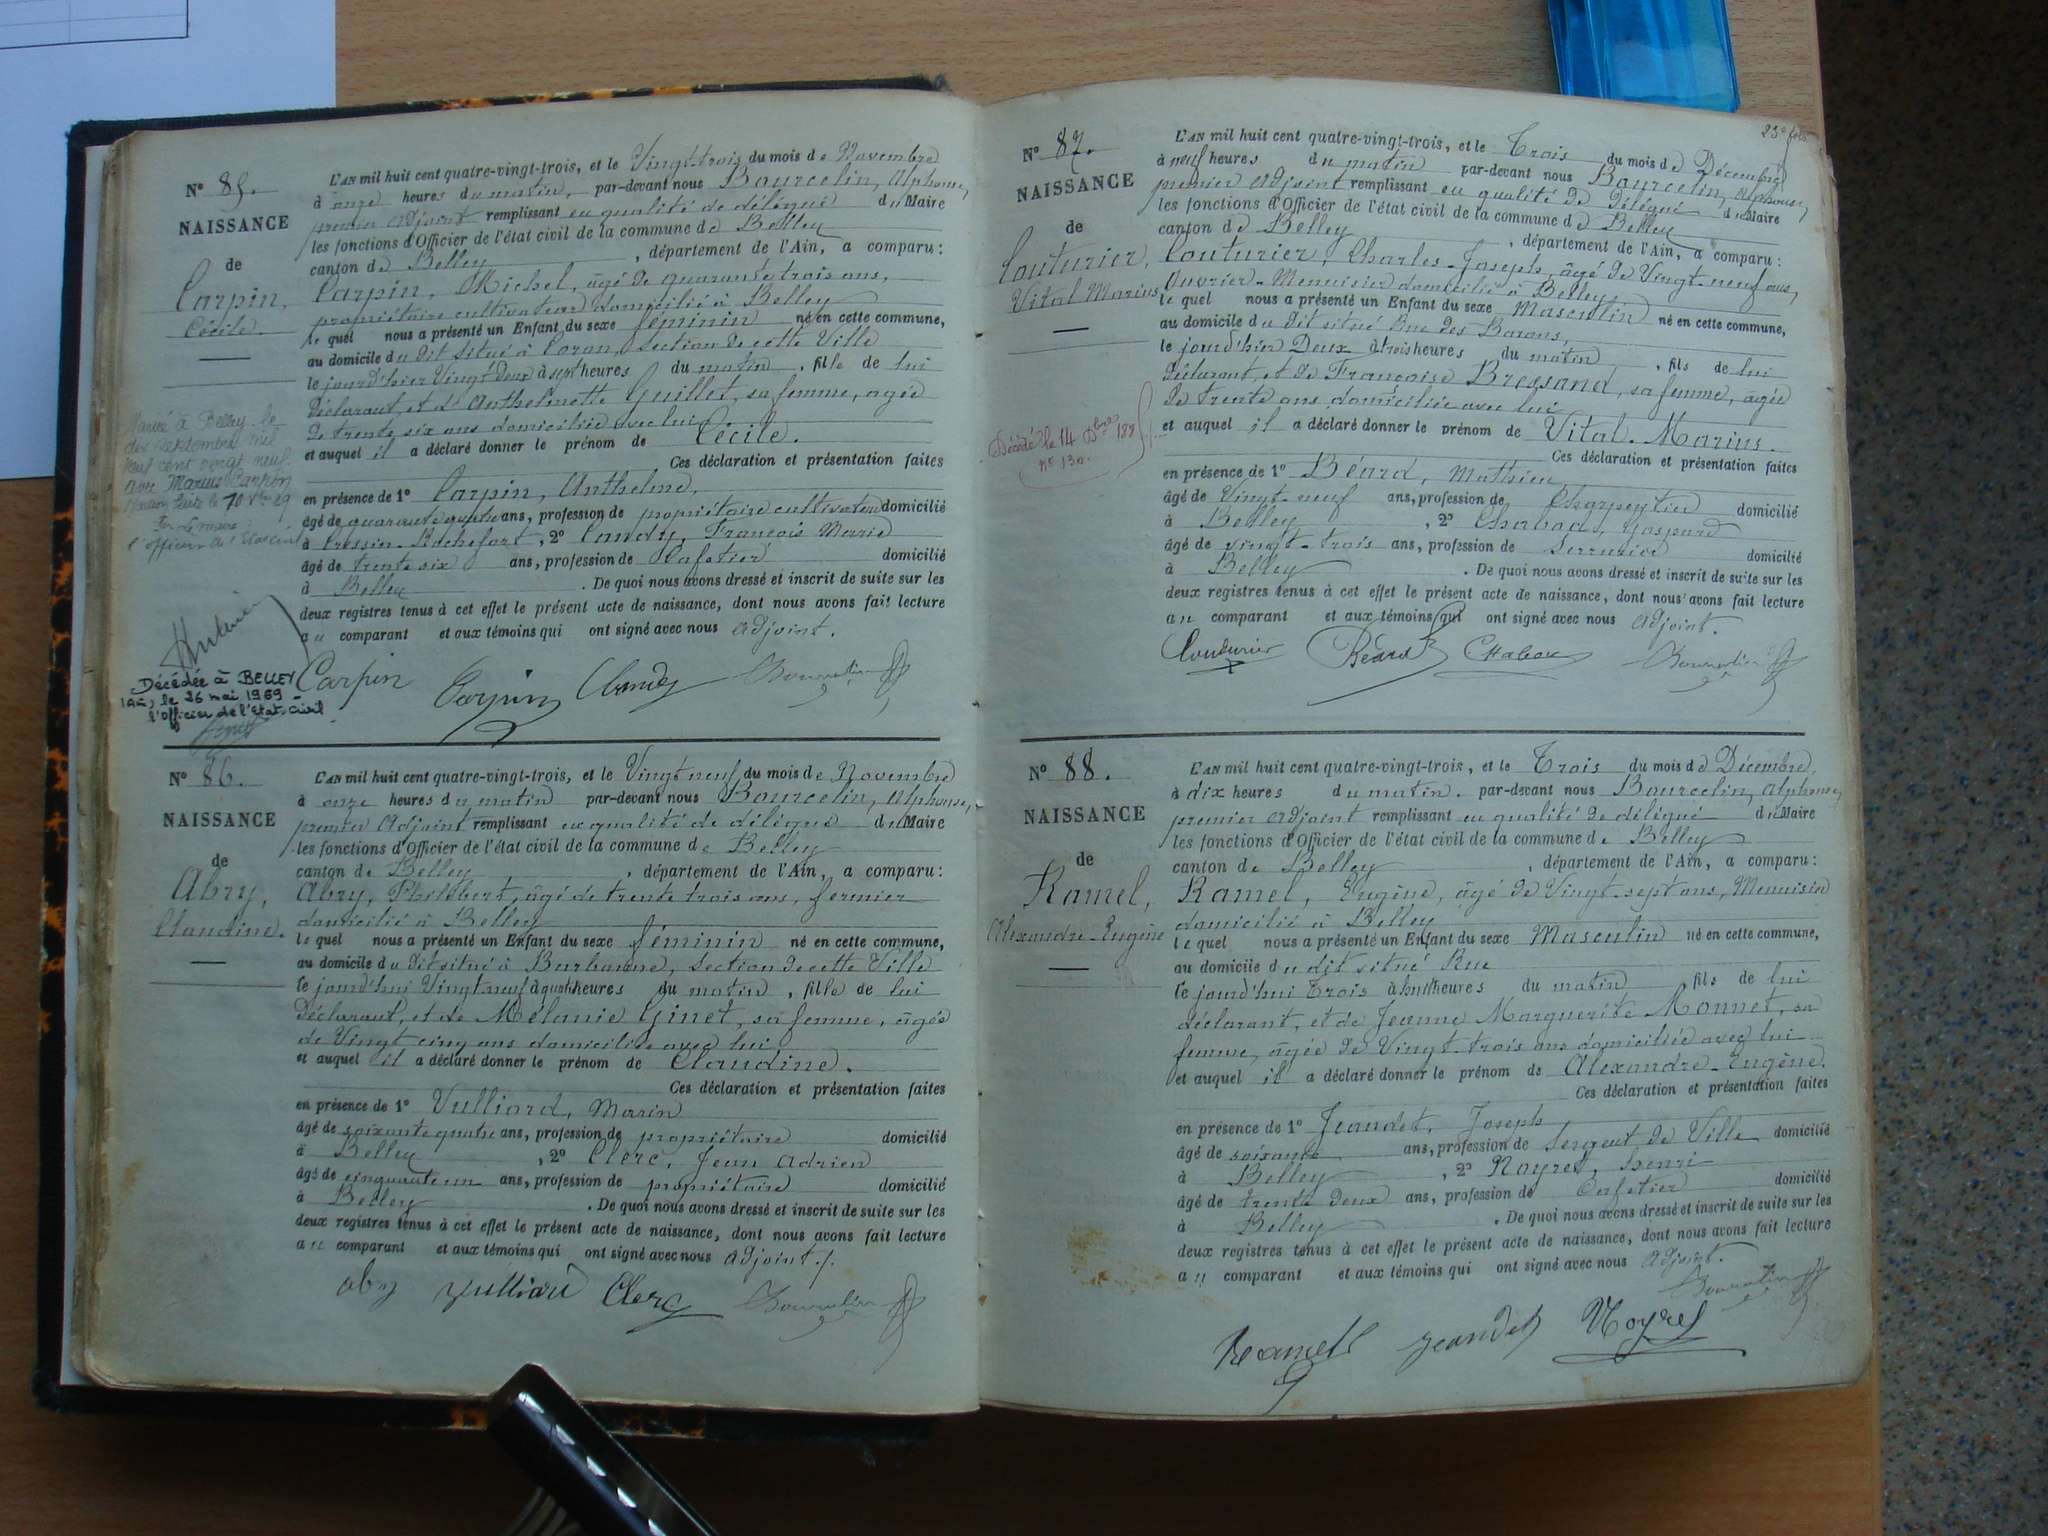 N° 85.
NAISSANCE
de
Carpin,
Cécile.
L'AN mil huit cent quatre-vingt-trois, et le Vingt-trois du mois de Novembre
à onze heures du matin, par-devant nous Bourcelin, Alphonse,
premier Adjoint remplissant en qualité de délégué du Maire
les fonctions d'Officier de l'état civil de la commune de Belley
canton de Belley, département de l'Ain, a comparu:
Carpin, Michel, âgé de quarante trois ans,
propriétaire cultivateur domicilié à Belley
le quel nous a présenté un Enfant du sexe féminin né en cette commune,
au domicile du dit situé à Coron, section de cette Ville
le jourd'hier Vingt deux à sept heures du matin, fille de lui
déclarant, et d'Anthelmette Guillet, sa femme, agée
de trente six ans domiciliée avec lui
et auquel il a déclaré donner le prénom de Cécile.
Ces déclaration et présentation faites
en présence de 1° Carpin, Anthelme,
âgé de quarante quatre ans, profession de propriétaire cultivateur domicilié
à Cressin-Rochefort, 2° Candy, François Marie
âgé de trente six ans, profession de Cafetier domicilié
à Belley. De quoi nous avons dressé et inscrit de suite sur les
deux registres tenus à cet effet le présent acte de naissance, dont nous avons fait lecture
au comparant et aux témoins qui ont signé avec nous adjoint.
Carpin Carpin Candy
Marié à Belley le
dix septembre mil
neuf cent vingt neuf
avec Marius Carpin
le 10 29
l'officier de l'Etat civil
Décédée à BELLEY
(Ain) le 26 mai 1969 -
l'Officier de l'Etat-Civil
N° 86.
NAISSANCE
de
Abry,
Claudine.
L'AN mil huit cent quatre-vingt-trois, et le Vingt neuf du mois de Novembre
à onze heures du matin par-devant nous Bourcelin, Alphonse,
premier Adjoint remplissant en qualité de délégué du Maire
les fonctions d'Officier de l'état civil de la commune de Belley
canton de Belley, département de l'Ain, a comparu:
Abry, Philibert, âgé de trente trois ans, fermier
domicilié à Belley
le quel nous a présenté un Enfant du sexe féminin né en cette commune,
au domicile du dit situé à Burbanne, section de cette Ville
le jourd'hui Vingt neuf à quatre heures du matin, fille de lui
déclarant, et de Mélanie Ginet, sa femme, âgée
de Vingt cinq ans domiciliée avec lui
et auquel il a déclaré donner le prénom de Claudine.
Ces déclaration et présentation faites
en présence de 1° Vulliard, Marin
âgé de soixante quatre ans, profession de propriétaire domicilié
à Belley, 2° Clerc, Jean Adrien
âgé de cinquante un ans, profession de propriétaire domicilié
à Belley. De quoi nous avons dressé et inscrit de suite sur les
deux registres tenus à cet effet le présent acte de naissance, dont nous avons fait lecture
au comparant et aux témoins qui ont signé avec nous adjoint./.
abry Vulliard Clerc
23e feuil.
N° 87.
NAISSANCE
de
Couturier,
Vital Marius,
L'AN mil huit cent quatre-vingt-trois, et le Trois du mois de Décembre
à neuf heures du matin par-devant nous Bourcelin, Alphonse,
premier adjoint remplissant en qualité de délégué du Maire
les fonctions d'Officier de l'état civil de la commune de Belley
canton de Belley, département de l'Ain, a comparu:
Couturier, Charles-Joseph, âgé de Vingt-neuf ans,
Ouvrier-Menuisier domicilié à Belley,
le quel nous a présenté un Enfant du sexe Masculin né en cette commune,
au domicile du dit situé Rue des Barons,
le jourd'hier Deux à trois heures du matin, fils de lui
déclarant, et de Françoise Bressand, sa femme, agée
de trente ans domiciliée avec lui
et auquel il a déclaré donner le prénom de Vital-Marius.
Ces déclaration et présentation faites
en présence de 1° Béard, Mathieu,
âgé de Vingt-neuf ans, profession de Charpentier domicilié
à Belley, 2° Chabod, Gaspard
âgé de vingt-trois ans, profession de Serrurier domicilié
à Belley. De quoi nous avons dressé et inscrit de suite sur les
deux registres tenus à cet effet le présent acte de naissance, dont nous avons fait lecture
au comparant et aux témoins qui ont signé avec nous adjoint.
Couturier Béard Chabod
Décédé le 14 Xbre 188
n° 130.
N° 88.
NAISSANCE
de
Ramel,
Alexandre-Eugène
L'AN mil huit cent quatre-vingt-trois, et le Trois du mois de Décembre,
à dix heures du matin. par-devant nous Bourcelin, Alphonse,
premier adjoint remplissant en qualité de délégué du Maire
les fonctions d'Officier de l'état civil de la commune de Belley
canton de Belley, département de l'Ain, a comparu:
Ramel, Eugène, âgé de Vingt-sept ans, Menuisier
domicilié à Belley
le quel nous a présenté un Enfant du sexe Masculin né en cette commune,
au domicile du dit situé Rue
le jourd'hui Trois à huit heures du matin fils de lui
déclarant, et de Jeanne Marguerite Monnet, sa
femme, âgée de Vingt-trois ans domiciliée avec lui
et auquel il a déclaré donner le prénom de Alexandre-Eugène.
Ces déclaration et présentation faites
en présence de 1° Jeandet, Joseph
âgé de soixante ans, profession de Sergent de Ville domicilié
à Belley, 2° Noyret, henri
âgé de trente deux ans, profession de Cafetier domicilié
à Belley. De quoi nous avons dressé et inscrit de suite sur les
deux registres tenus à cet effet le présent acte de naissance, dont nous avons fait lecture
au comparant et aux témoins qui ont signé avec nous adjoint.
Ramel Jeandet Noyret